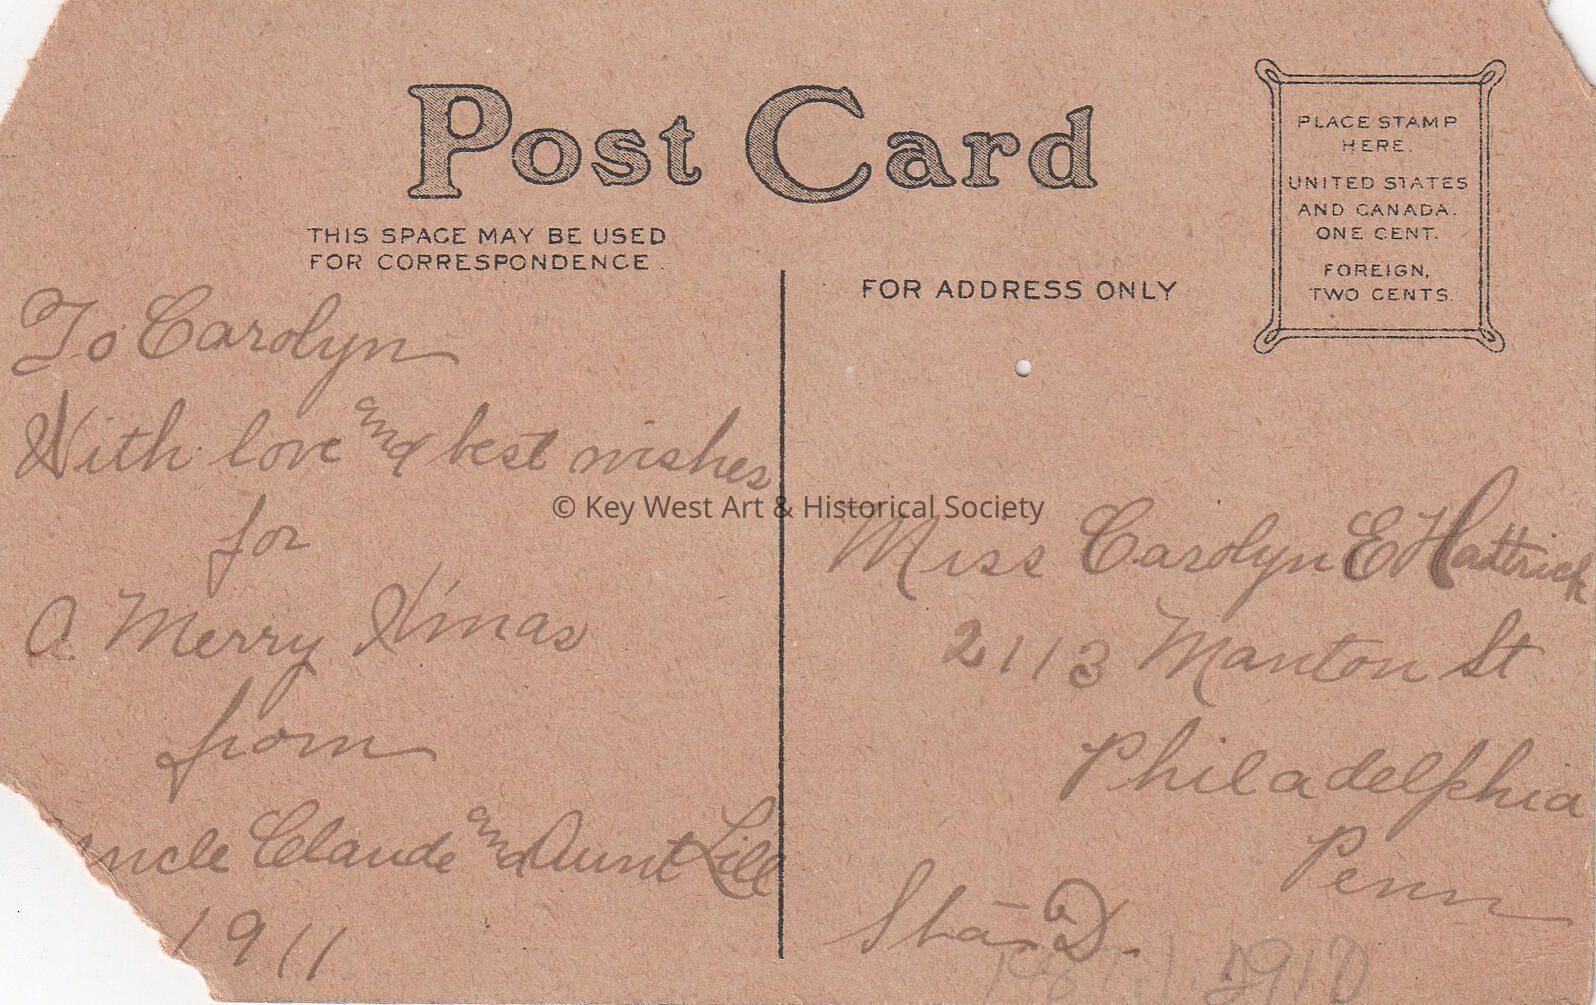 Post Card
THIS SPACE MAY BE USED
FOR CORRESPONDENCE.
To Carolyn
With love and best wishes
for
A Merry X'mas
from
Uncle Claude and Aunt Lill
1911
PLACE STAMP
HERE.
UNITED STATES
AND CANADA.
ONE CENT.
FOREIGN,
TWO CENTS.
FOR ADDRESS ONLY
Miss Carolyn E Hattrick
2113 Manton St
Philadelphia
Penn
Sta. D.
© Key West Art & Historical Society